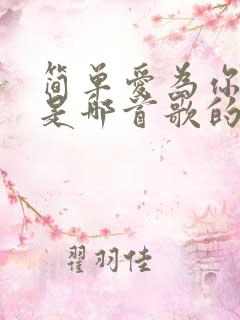 简单爱为你
是哪首歌的
翟羽佳